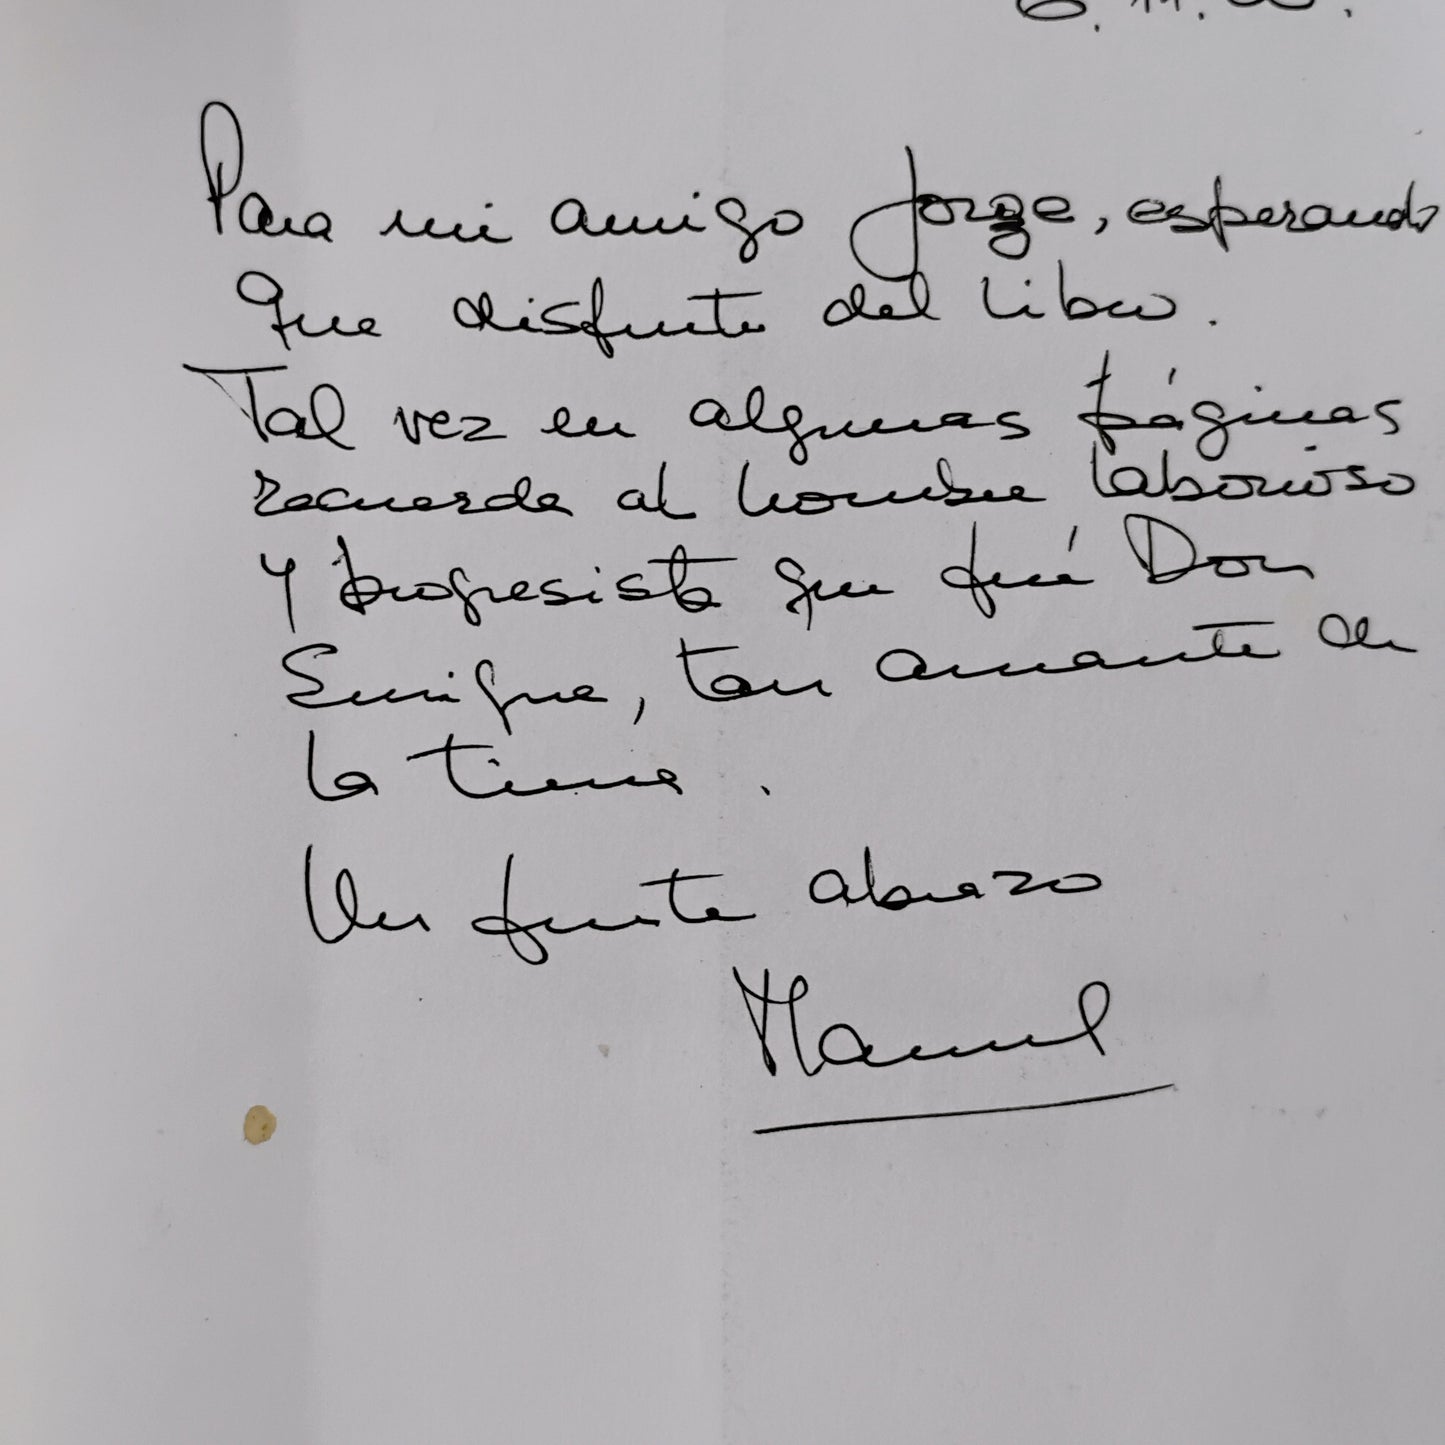 Para mi amigo Jorge, esperando
que disfrute del libro.
Tal vez en algunas páginas
recuerde al hombre laborioso
y progresista que fué Don
Enrique, tan amante de
la tierra.
Un fuerte abrazo
Manuel